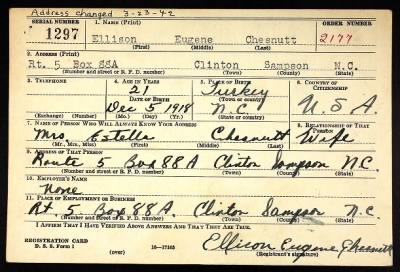 Address changed 3-23-42
SERIAL NUMBER 1. NAME (Print) ORDER NUMBER
1297 Ellison Eugene Chesnutt 2177
(First) (Middle) (Last)
2. ADDRESS (Print)
Rt. 5 Box 88A Clinton Sampson N.C.
(Number and street or R. F. D. number) (Town) (County) (State)
3. TELEPHONE 4. AGE IN YEARS 5. PLACE OF BIRTH 6. COUNTRY OF CITIZENSHIP
21 Turkey
DATE OF BIRTH (Town or county)
Dec 5 1918 N.C. U.S.A.
(Exchange) (Number) (Mo.) (Day) (Yr.) (State or country)
7. NAME OF PERSON WHO WILL ALWAYS KNOW YOUR ADDRESS 8. RELATIONSHIP OF THAT PERSON
Mrs. Estelle Chesnutt Wife
(Mr., Mrs., Miss) (First) (Middle) (Last)
9. ADDRESS OF THAT PERSON
Route 5 Box 88A Clinton Sampson N.C.
(Number and street or R. F. D. number) (Town) (County) (State)
10. EMPLOYER'S NAME
None
11. PLACE OF EMPLOYMENT OR BUSINESS
Rt. 5 Box 88A. Clinton Sampson N.C.
(Number and street or R. F. D. number) (Town) (County) (State)
I AFFIRM THAT I HAVE VERIFIED ABOVE ANSWERS AND THAT THEY ARE TRUE.
REGISTRATION CARD
D. S. S. Form 1 (over) 16-17105 Ellison Eugene Chesnutt
(Registrant's signature)